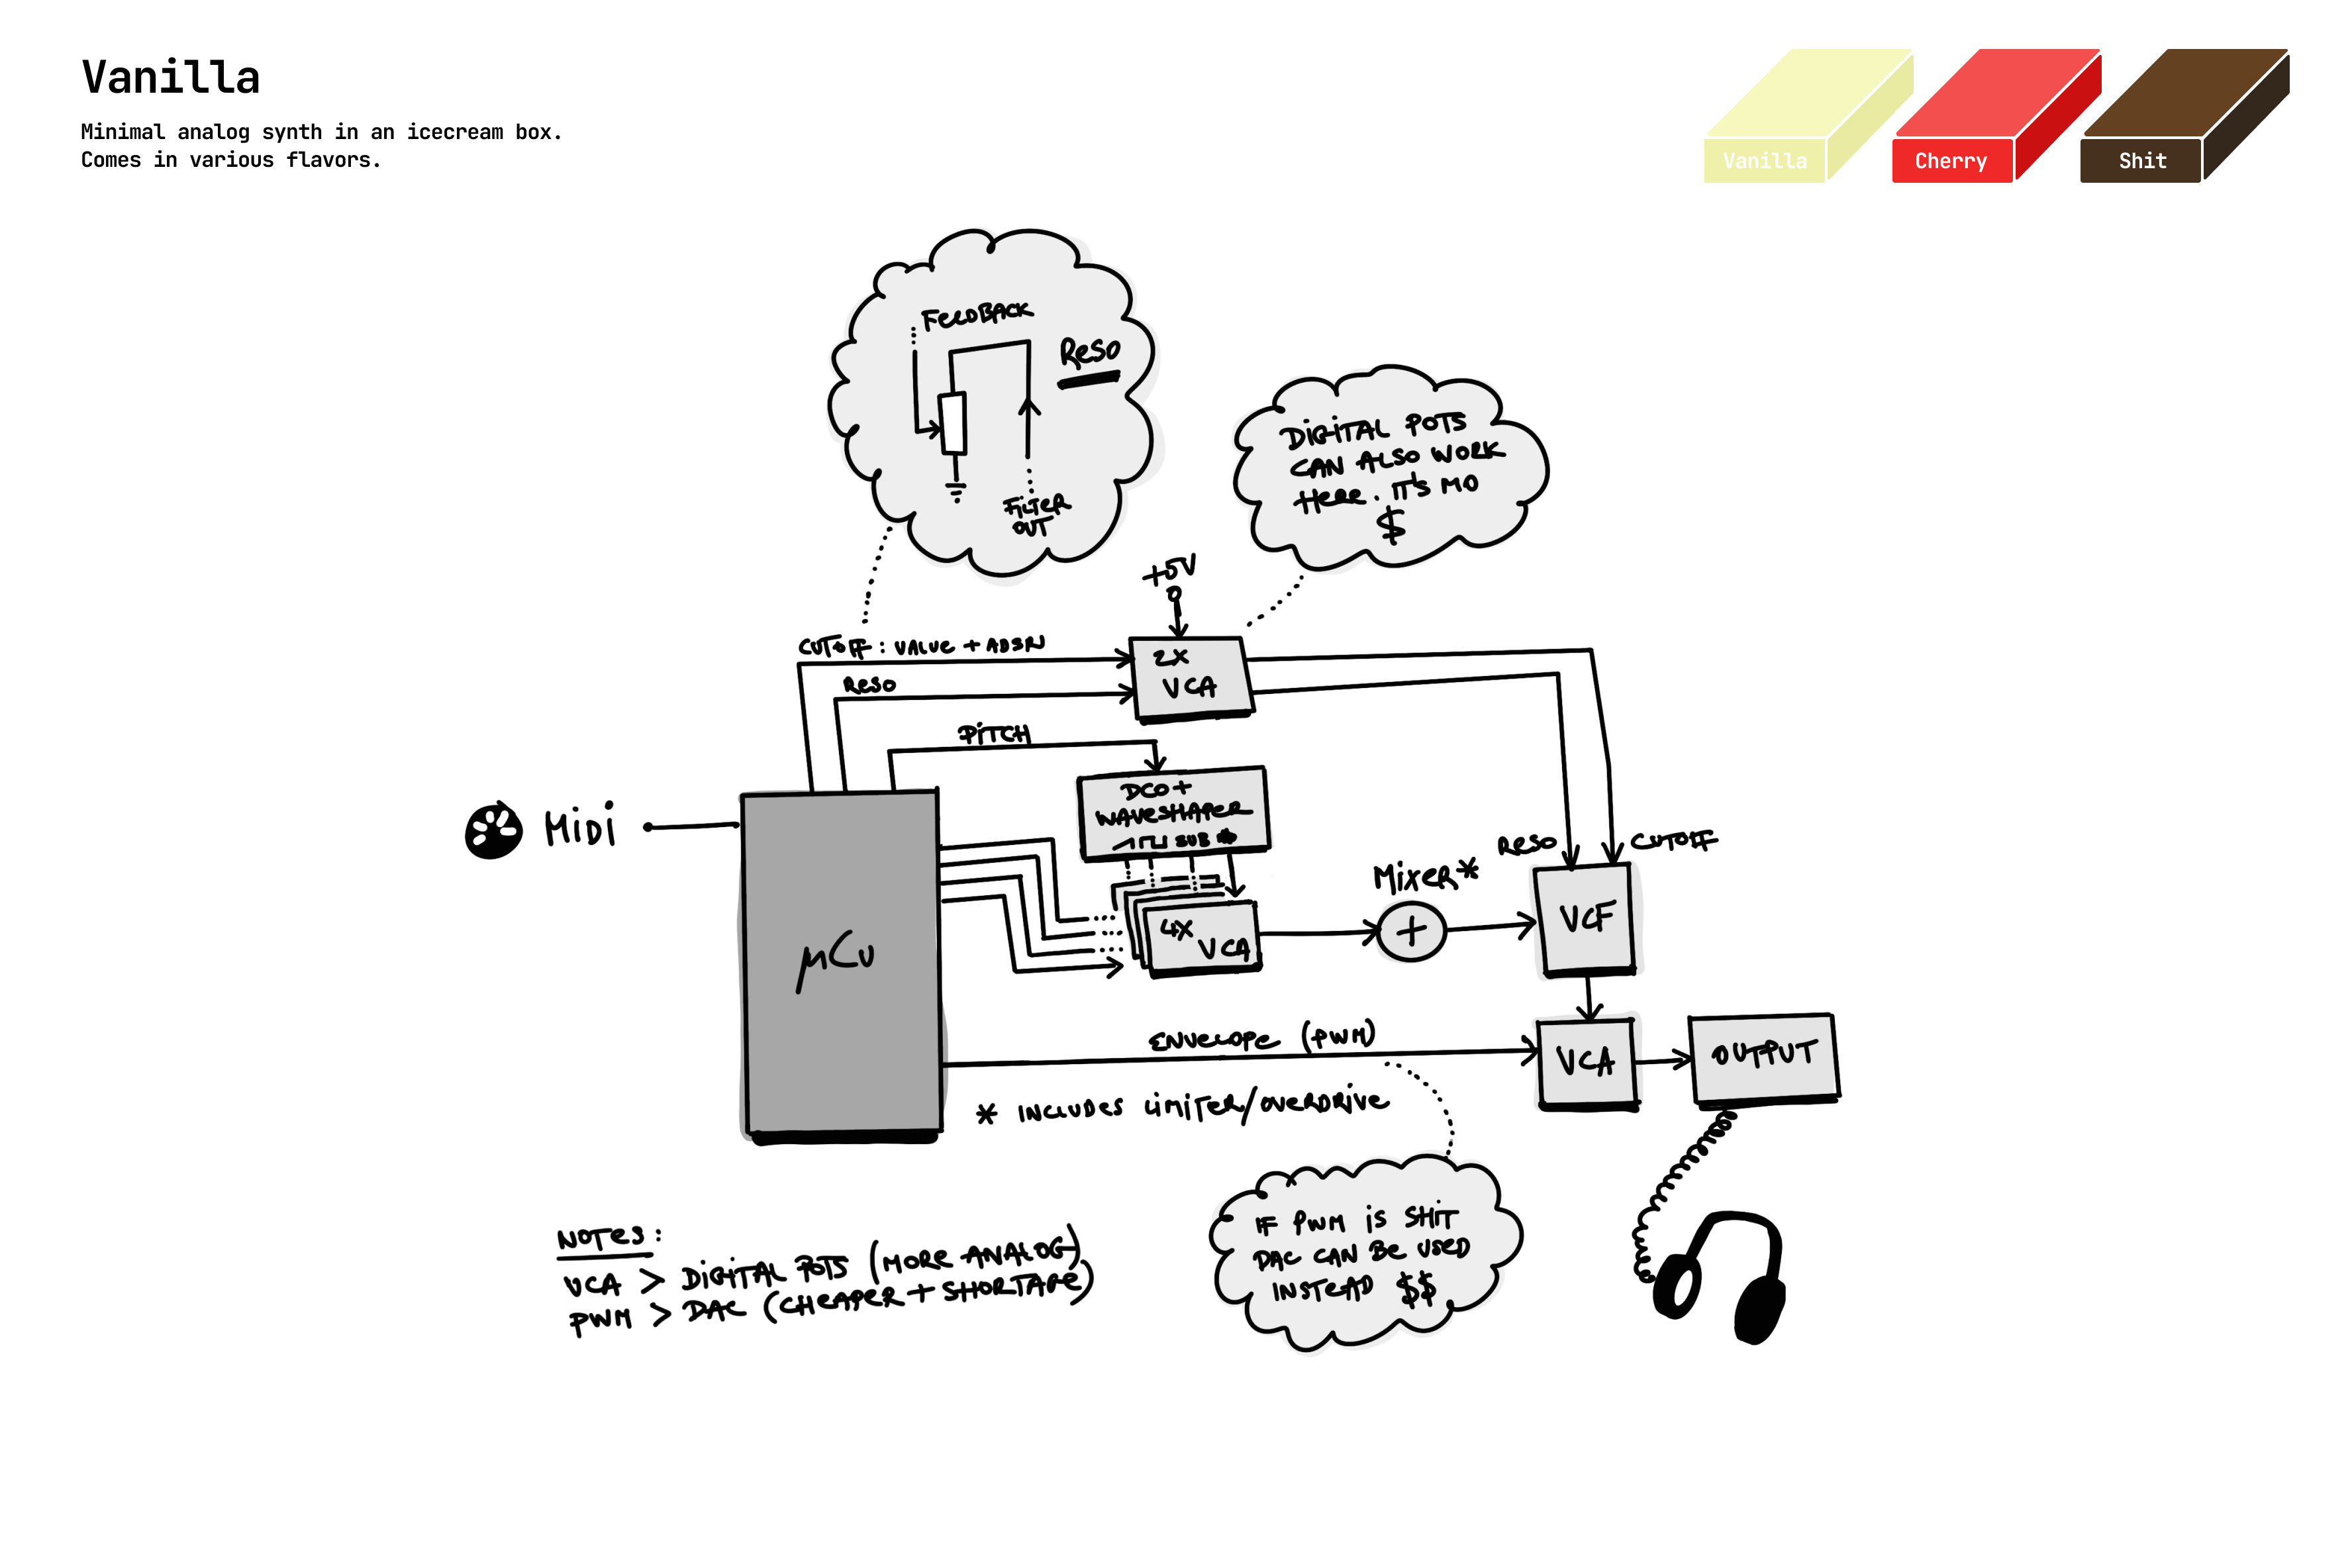 Vanilla
Minimal analog synth in an icecream box.
Comes in various flavors.
Vanilla
Cherry
Shit
FEEDBACK
RESO
FILTER
OUT
DIGITAL POTS
CAN ALSO WORK
HERE. IT'S MO
$
+5V
CUTOFF: VALUE + ADSR
RESO
2X
VCA
PITCH
DCO+
WAVESHAPER
SUB
MIDI
µCU
4X
VCA
MIXER*
+
RESO
CUTOFF
VCF
ENVELOPE (PWM)
VCA
OUTPUT
* INCLUDES LIMITER/OVERDRIVE
IF PWM IS SHIT
DAC CAN BE USED
INSTEAD $$
NOTES:
VCA > DIGITAL POTS (MORE ANALOG)
PWM > DAC (CHEAPER + SHORTAGE)